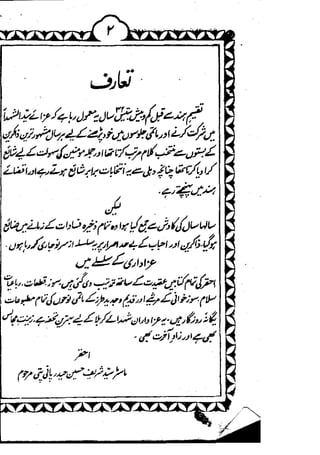 ۲
تعارف
تقسیم ہند سے قبل کم و بیش سال یہ معمول رہا ہے کہ عزائے سید الشہداءؑ
میں شرکت کرنے اور ماتمی جلوسوں میں خود پڑھنے کے لیے ہر سال مشہور ترین ذاکرین
کے بستوں سے منتخب کلام مرتب کرتا تھا اور جملہ مومنین کی سہولت کے لیے شائع
کرا دیا کرتا تھا چنانچہ دہلی سے یہ انتخابات برابر شائع ہوتے رہے اور اقصائے
ہند میں پہنچتے رہے۔
لیکن
سالہا سال کی کاوش سے جمع کیا ہوا وہ تمام ذخیرہ فسادات کے زمانے میں ضائع
ہوگیا۔ ذاکرین اور احباب کے بے حد اصرار پر یہ سلسلہ از سر نو جاری کر رہا ہوں۔
عزاداری کے سلسلے میں
احقر کی تمام کتابیں عقیدت کے ساتھ ترتیب دی گئی ہیں، سوز، قطعات، رباعیات
سلام، سوز خوانی کے مرثیے اور قدیم و جدید طرز کے ماتمی نوحوں کی تمام مطبوعات
یگانۂ روزگار ہیں۔ یہ عزاداران شہدائے کربلا کے لیے بہترین تحفہ ہے، زینت مجالس
بھی ہے اور زاد آخرت بھی۔
احقر
ماسٹر سید شریف حسین حیدر پانی پتی مرحوم